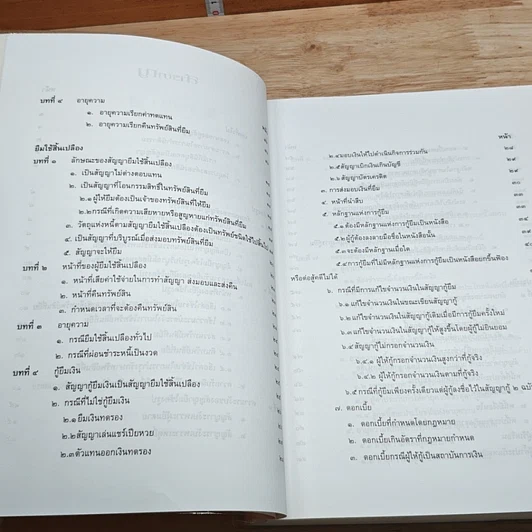 บทที่ ๔ อายุความ
๑. อายุความเรียกค่าทดแทน
๒. อายุความเรียกคืนทรัพย์สินที่ยืม
ยืมใช้สิ้นเปลือง
บทที่ ๑ ลักษณะของสัญญายืมใช้สิ้นเปลือง
๑. เป็นสัญญาไม่ต่างตอบแทน
๒. เป็นสัญญาที่โอนกรรมสิทธิ์ในทรัพย์สินที่ยืม
๒.๑ผู้ให้ยืมต้องเป็นเจ้าของทรัพย์สินที่ให้ยืม
๒.๒กรณีที่เกิดความเสียหายหรือสูญหายแก่ทรัพย์สินที่ยืม
๓. วัตถุแห่งหนี้ตามสัญญายืมใช้สิ้นเปลืองต้องเป็นทรัพย์ชนิดใช้ไปสิ้นไป
๔. เป็นสัญญาที่บริบูรณ์เมื่อส่งมอบทรัพย์สินที่ยืม
๕. สัญญาจะให้ยืม
บทที่ ๒ หน้าที่ของผู้ยืมใช้สิ้นเปลือง
๑. หน้าที่เสียค่าใช้จ่ายในการทำสัญญา ส่งมอบและส่งคืน
๒. หน้าที่คืนทรัพย์สิน
๓. กำหนดเวลาที่จะต้องคืนทรัพย์สิน
บทที่ ๓ อายุความ
๑. กรณียืมใช้สิ้นเปลืองทั่วไป
๒. กรณีที่ผ่อนชำระหนี้เป็นงวด
บทที่ ๔ กู้ยืมเงิน
๑. สัญญากู้ยืมเงินเป็นสัญญายืมใช้สิ้นเปลือง
๒. กรณีที่ไม่ใช่กู้ยืมเงิน
๒.๑ยืมเงินทดรอง
๒.๒สัญญาเล่นแชร์เปียหวย
๒.๓ตัวแทนออกเงินทดรอง
หน้า
๒.๔มอบเงินให้ไปดำเนินกิจการร่วมกัน
๒.๕สัญญาเบิกเงินเกินบัญชี
๒.๖สัญญาบัตรเครดิต
๓. การส่งมอบเงินที่ยืม
๔. หน้าที่นำสืบ
๕. หลักฐานแห่งการกู้ยืม
๕.๑ต้องมีหลักฐานแห่งการกู้ยืมเป็นหนังสือ
๕.๒ผู้กู้ต้องลงลายมือชื่อในหนังสือนั้น
๕.๓จะต้องมีหลักฐานเมื่อใด
๕.๔การกู้ยืมที่ไม่มีหลักฐานแห่งการกู้ยืมเป็นหนังสือยกขึ้นฟ้อง
หรือต่อสู้คดีไม่ได้
๖. กรณีที่มีการแก้ไขจำนวนเงินในสัญญากู้ยืม
๖.๑แก้ไขจำนวนเงินในขณะเขียนสัญญากู้
๖.๒แก้ไขจำนวนเงินในสัญญากู้เดิมเมื่อมีการกู้ยืมครั้งใหม่
๖.๓แก้ไขจำนวนเงินในสัญญากู้ให้สูงขึ้นโดยผู้กู้ไม่ยินยอม
๖.๔สัญญากู้ไม่กรอกจำนวนเงิน
๖.๔.๑ ผู้ให้กู้กรอกจำนวนเงินสูงกว่าที่กู้จริง
๖.๔.๒ ผู้ให้กู้กรอกจำนวนเงินตามที่กู้จริง
๖.๕กรณีที่กู้ยืมเพียงครั้งเดียวแต่ผู้กู้ลงชื่อไว้ในสัญญากู้ ๒ ฉบับ
๗. ดอกเบี้ย
๑. ดอกเบี้ยที่กำหนดโดยกฎหมาย
๒. ดอกเบี้ยเกินอัตราที่กฎหมายกำหนด
๓. ดอกเบี้ยกรณีผู้ให้กู้เป็นสถาบันการเงิน